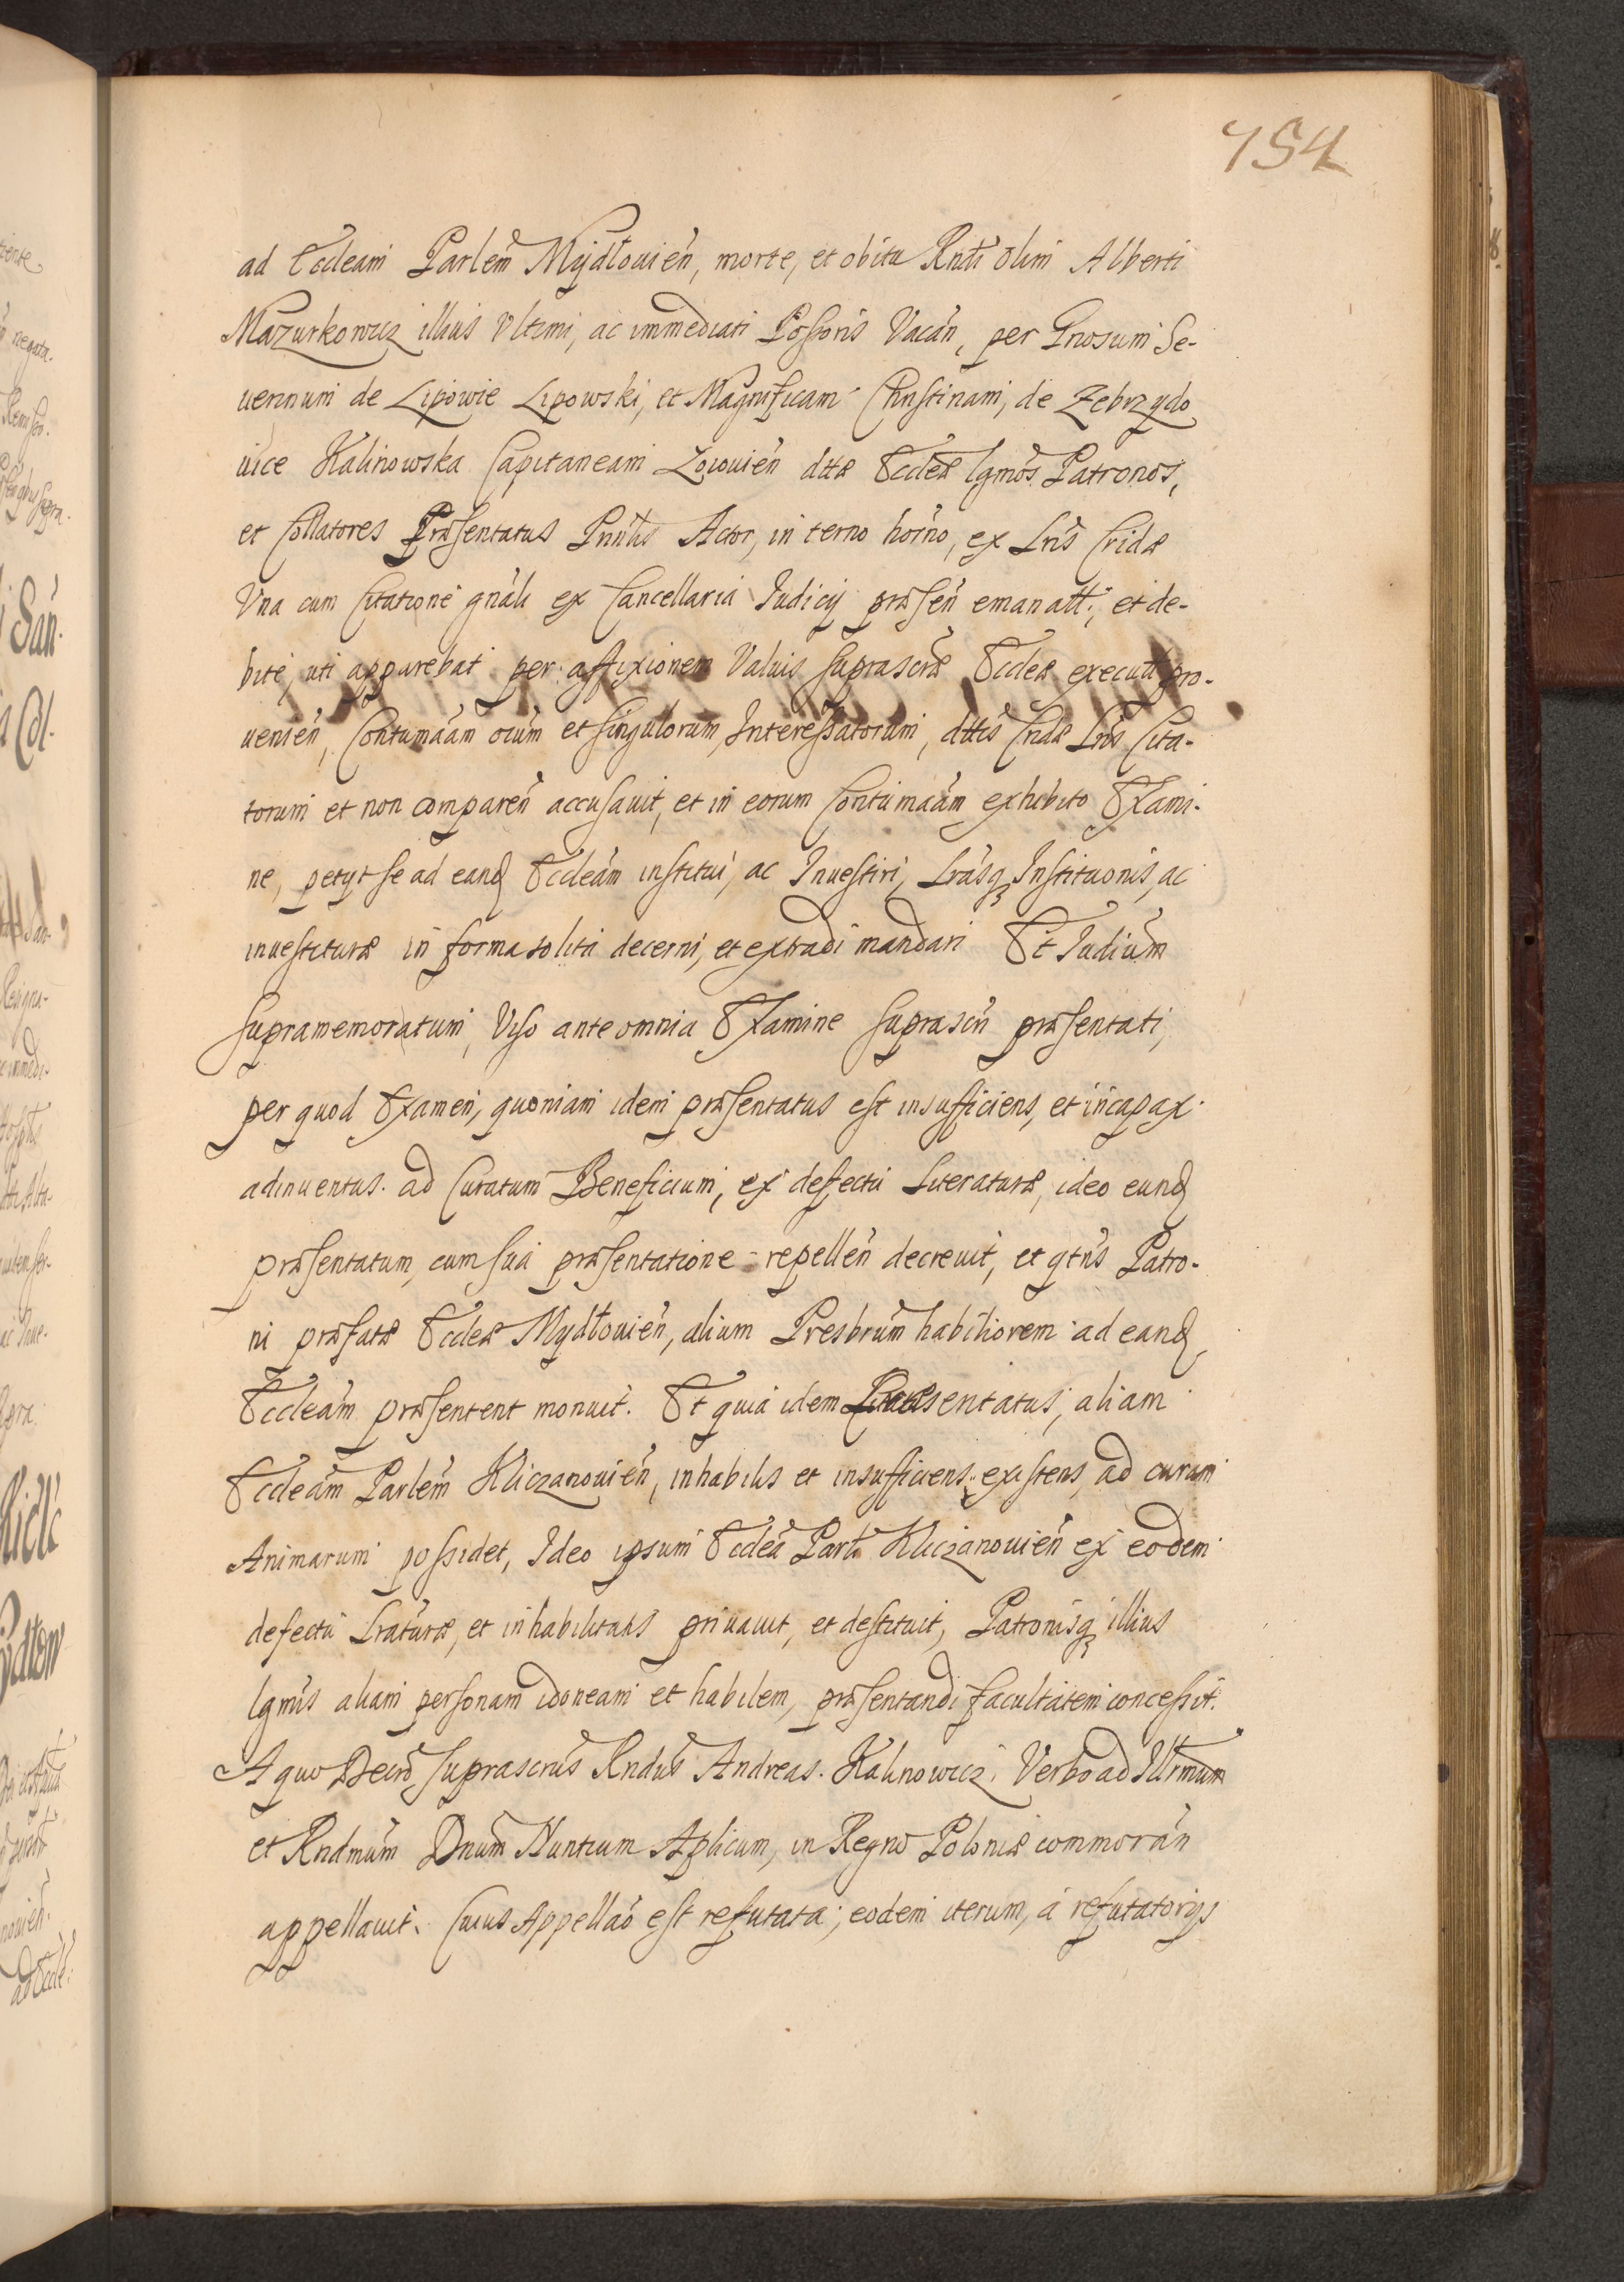 754
ad Eccleam Parlem Mydłouień, morte, et obitu Rndi olim Alberti
Mazurkowicz illius Vltimi, ac immediati Possoris Vacań, per Gnosum Se-
uerinum de Lipowie Lipowski, et Magnificam Christinam, de Zebrzydo
uice Kalinowska Capitaneam Lououień dttæ Eccleæ lgmos Patronos,
et Collatores Præsentatus Pnńtis Actor, in terno horno, ex Lris Cridæ
Vna cum Citatione gnali ex Cancellaria Iudicij præseń emanatt:, et de-
bite, uti apparebat per affixionem Valuis suprascræ Eccleæ executt pro-
uenień, Contumaam oium et singulorum, Interessatorum, dttis Cridæ Lris Cita-
torum et non compareń accusauit, et in eorum Contumaam exhibito Exami-
ne, petyt se ad eand Eccleam institui, ac Inuestiri, Lrasq Institutionis, ac
inuestituræ in forma solita decerni, et extradi mandari Et Iudium
supramemoratum, Viso ante omnia Examine suprascri præsentati,
per quod Examen, quoniam idem præsentatus est insufficiens, et incapax
adinuentus. ad Curatum Beneficium, ex defectu Literaturæ, ideo eund
præsentatum, cum sua præsentatione repelleń decreuit, et qtńs Patro-
ni præfatæ Eccleæ Mydłouień, alium Presbrum habiliorem ad eand
Eccleam præsentent monuit. Et quia idem Præsentatus, aliam
Eccleam Parlem Kliczanouień, inhabilis et insufficiens existens, ad curam
Animarum possidet, Ideo ipsum Ecclea Parli Kliczanouień ex eodem
defectu Lraturæ, et inhabilitatis priuauit, et destituit, Patronisq illius
lgmis aliam personam idoneam et habilem, præsentandi facultatem concessit.
A quo Decro suprascrus Rndus Andreas. Kalinowicz. Verbo ad Illrmum
et Rndmum Dnum Nuntium Aplicum, in Regno Poloniæ commorań
appellauit. Cuius Appellao est refutata, eodem iterum, a refutatorijs